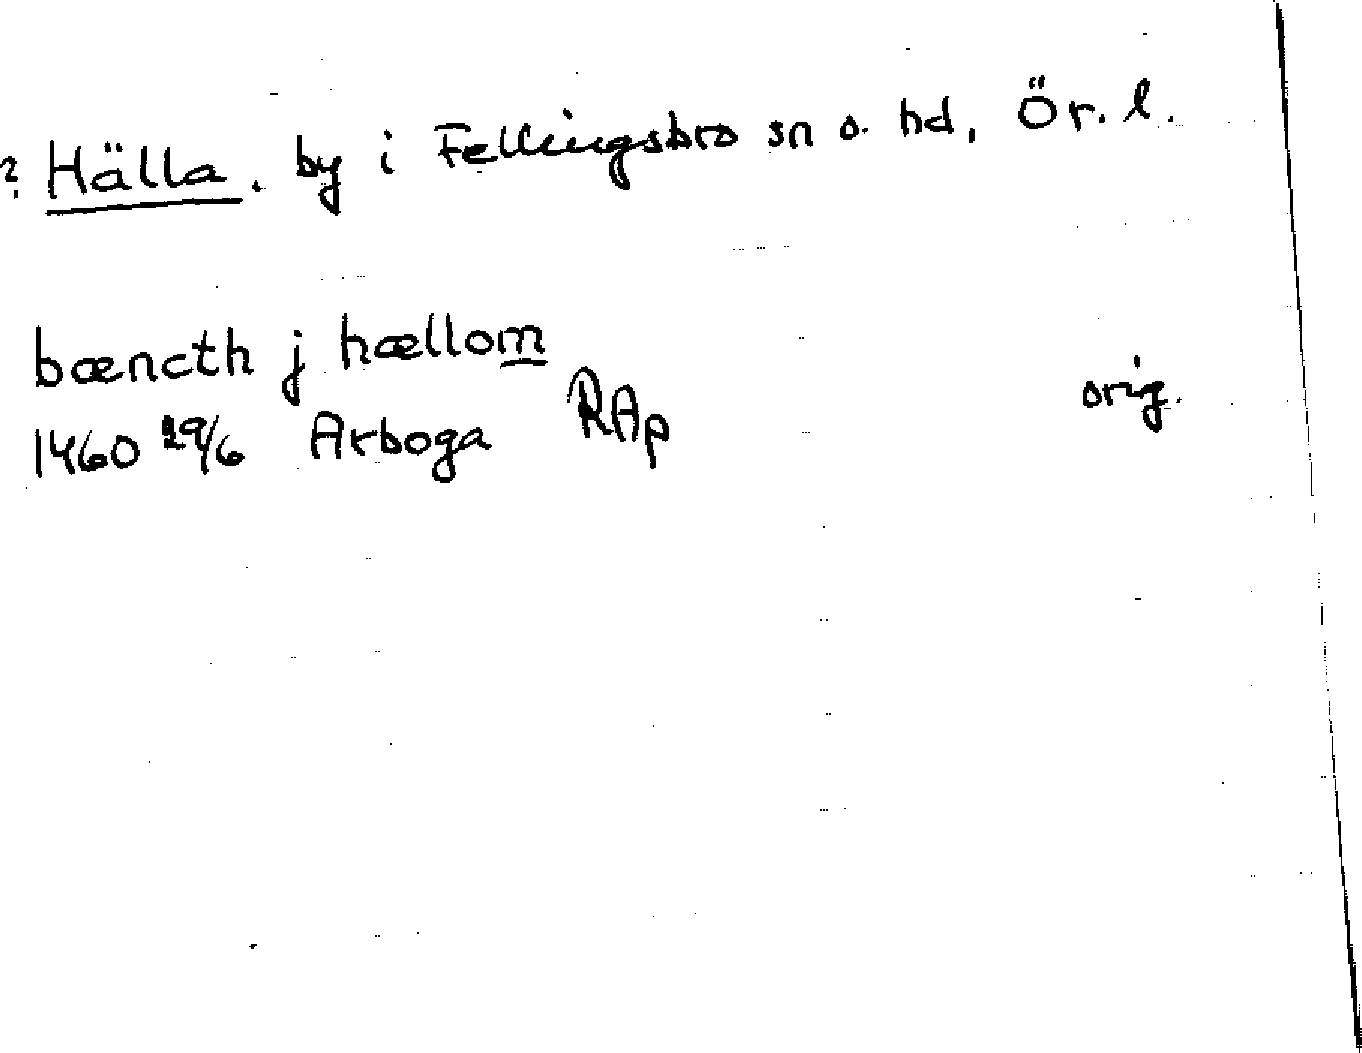 ? Hälla. by i Fellingsbro sn o. hd, Ör. l.
bæncth j hællom
orig.
1460 29/6 Arboga RAp